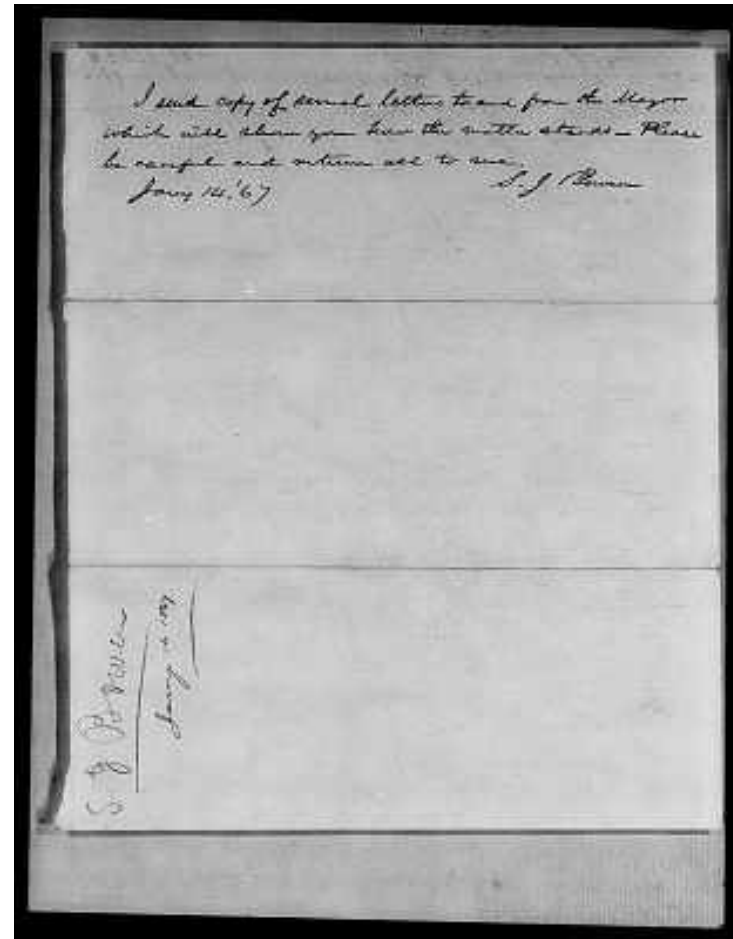 I send copy of several letters to and from the Mayor
which will show you how the matter stands — Please
be careful and return all to me.
Jany 14, '67
S. J. Bowen
S J Bowen
Jany 14 1867